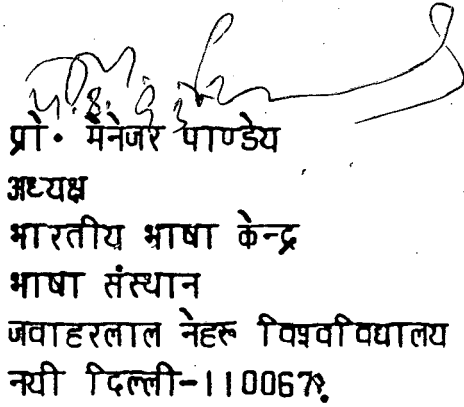 प्रो· मैनेजर पाण्डेय
अध्यक्ष
भारतीय भाषा केन्द्र
भाषा संस्थान
जवाहरलाल नेहरू विश्वविद्यालय
नयी दिल्ली-110067